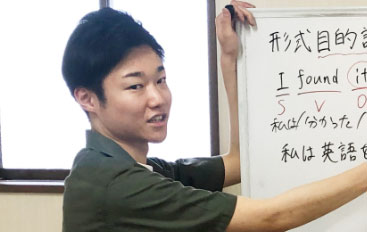 形式目的
I found it
S V O
私は/分かった/
私は英語